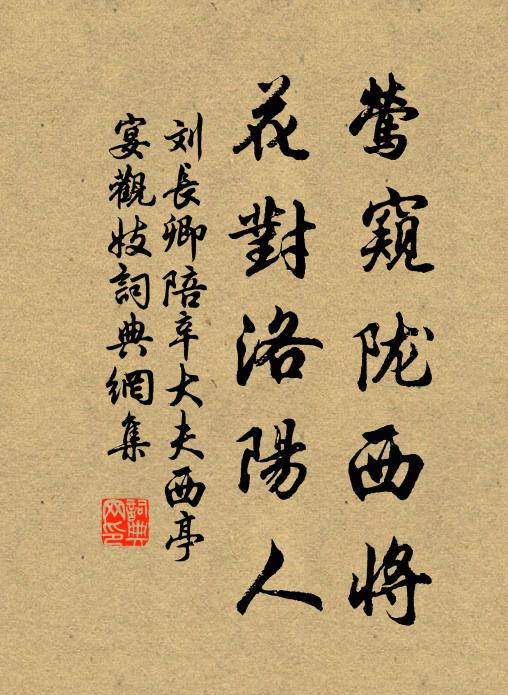 鶯窺陇西將
花對洛陽人
刘長卿陪辛大夫西亭
宴觀妓詞典網集
詞典
网印